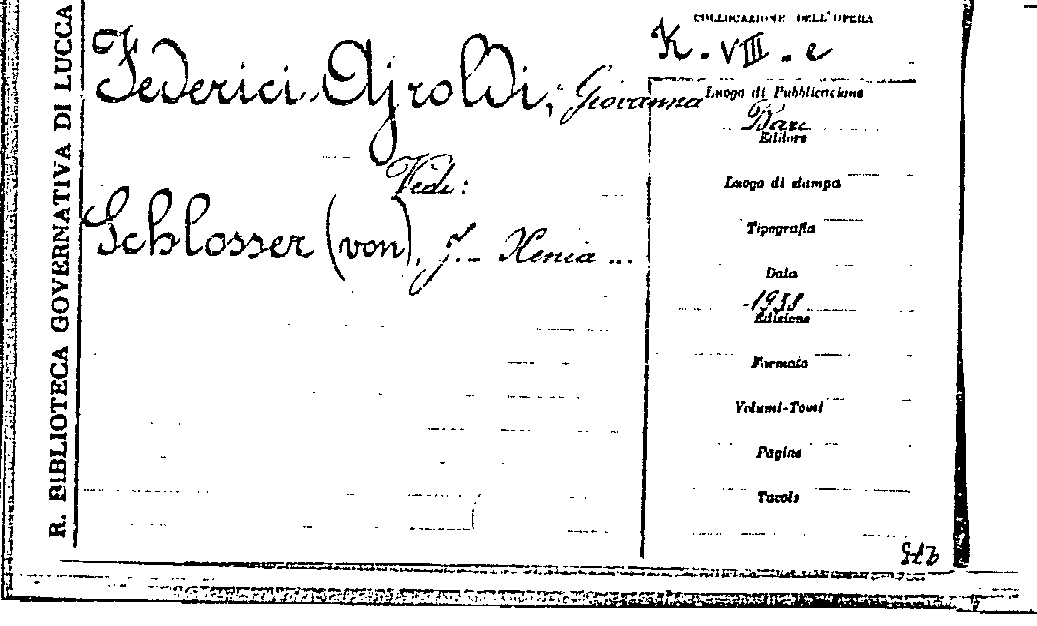 R. BIBLIOTECA GOVERNATIVA DI LUCCA
Federici Ajroldi, Giovanna
Vedi:
Schlosser (von), J.- Xenia ...
COLLOCAZIONE DELL'OPERA
K. VIII. e
Luogo di Pubblicazione
Bari
Editore
Luogo di stampa
Tipografia
Data
1938
Edizione
Formato
Volumi-Tomi
Pagine
Tavole